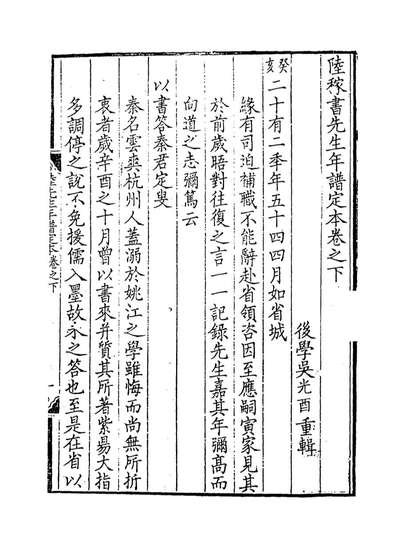 陸稼書先生年譜定本卷之下
後學吳光酉重輯
癸亥二十有二季年五十四四月如省城
緣有司迫補職不能辭赴省領咨因至應嗣寅家見其
於前歲晤對往復之言一一記錄先生嘉其年彌高而
向道之志彌篤云
以書答秦君定叟
秦名雲爽杭州人蓋溺於姚江之學雖悔而尚無所折
衷者歲辛酉之十月曾以書來并質其所著紫昜大指
多調停之說不免援儒入墨故未之答也至是在省以
卷之下